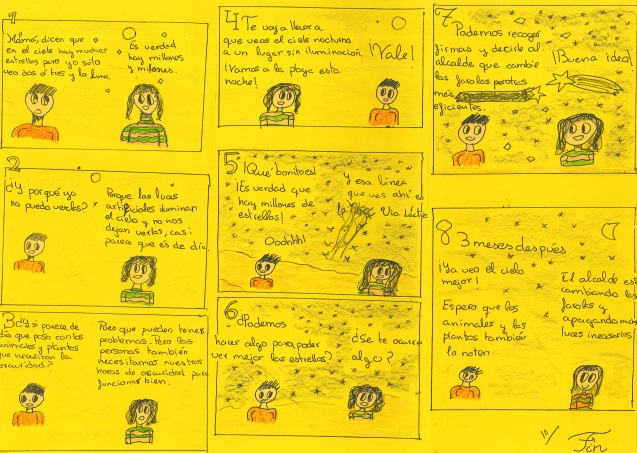 1
Mamá, dicen que
en el cielo hay muchas
estrellas pero yo sólo
veo dos ó tres y la luna.
Es verdad
hay millones
y millones.
2
¿Y por qué yo
no puedo verlas?
Porque las luces
artificiales iluminan
el cielo y no nos
dejan verlas, casi
parece que es de día
3
¿Y si parece de
día que pasa con los
animales y plantas
que necesitan la
oscuridad?
Pues que pueden tener
problemas. Pero las
personas también
necesitamos nuestras
horas de oscuridad para
funcionar bien.
4
Te voy a llevar a
que veas el cielo nocturno
a un lugar sin iluminación
¡Vamos a la playa esta
noche!
¡Vale!
5
¡Qué bonito es!
¡Es verdad que
hay millones de
estrellas!
Ooohhh!
Y esa línea
que ves ahí es
la Vía Láctea
6
¿Podemos
hacer algo para poder
ver mejor las estrellas?
¿Se te ocurre
algo?
7
Podemos recoger
firmas y decirle al
alcalde que cambie
las farolas por otras
más
eficientes.
¡Buena idea!
8
3 meses después
¡Ya veo el cielo
mejor!
Espero que los
animales y las
plantas también
lo noten
El alcalde está
cambiando las
farolas y
apagando
luces innecesarias
Fin